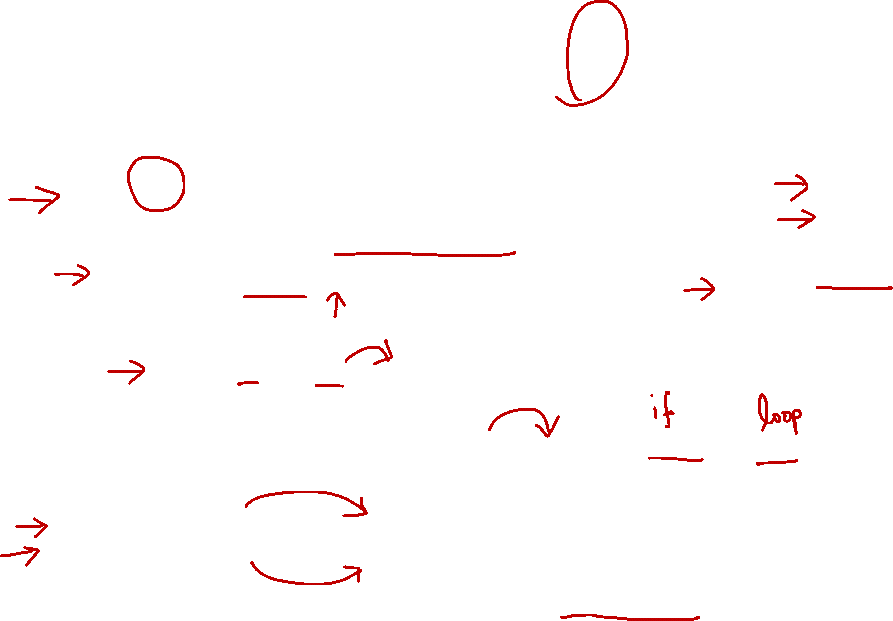 if loop